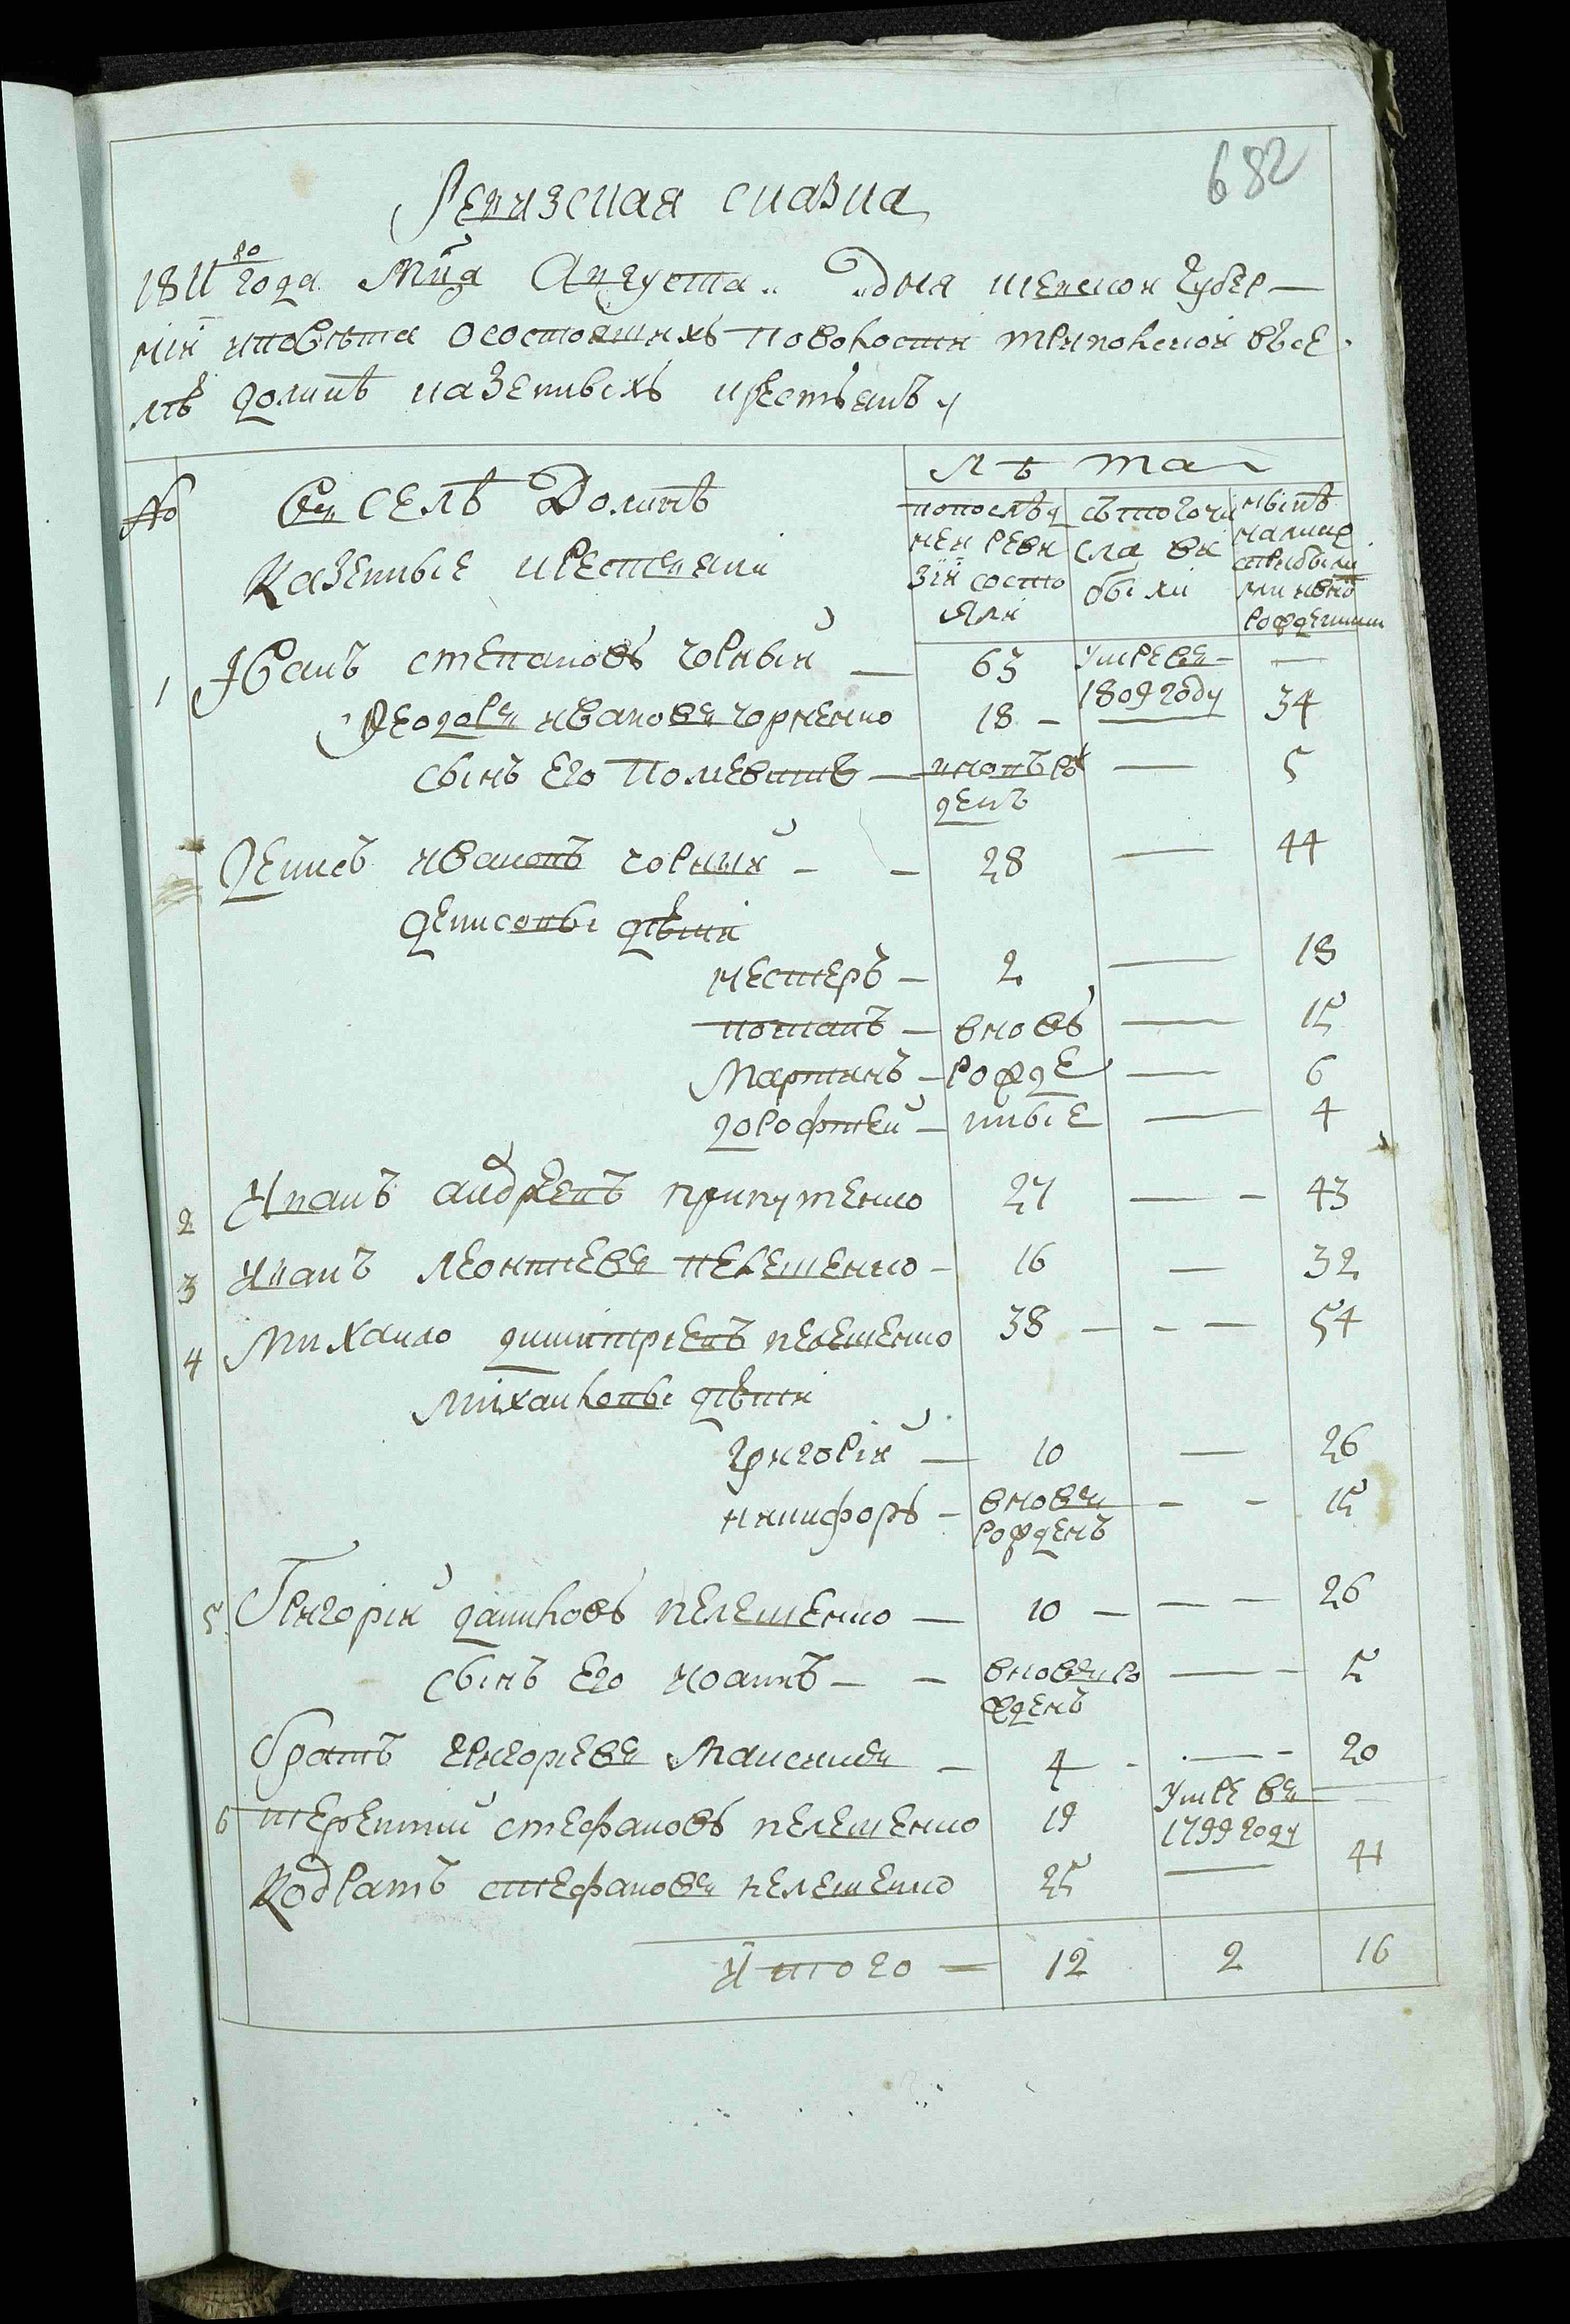 682
Ревизская сказка
1811го года мца Августа „ „ дня киевской губер-
ніи иповѣта осостоящихъ поволости трипольской въсе-
лѣ долинѣ казенныхъ крестьянъ
№
Въ селѣ Долинѣ
Казенные крестьяни
лѣта
попослѣд
ней реви
зіи состо
яли
стого чи
сла вы
были
нынѣ
налице
сприбыли
ми ивнов
рожденими
1 Іванъ степановъ чорный — 63 умреве 1809 году —
Феодоръ ивановъ чорненко 18 — — 34
сынъ его Полиевктъ — вновъ рож
денъ — 5
Денисъ ивановъ чорный — — 28 — 44
денисовы дѣти
нестеръ — 2 — 18
потапъ — вновъ — 15
Мартинъ — рожде — 6
дорофтей — нные — 4
2 Иванъ андреевъ припутенко 27 — 43
3 иванъ леонтіевъ пелешенко — 16 — 32
4 Михайло димитріевъ пелешенко 38 — — — 54
михайловы дѣти
григорій — 10 — 26
никифоръ — вновъ
рожденъ — — 15
5 Григорій даниловъ пелешенко — 10 — — — 26
сынъ его иоанъ — — вновъ ро
жденъ — 5
братъ григоріевъ Максимъ — 4 — 20
6 терентий стефановъ пелешенко 19 умре въ
1799 году —
Кодратъ стефановъ пелешенко 25 — 41
Итого — 12 2 16